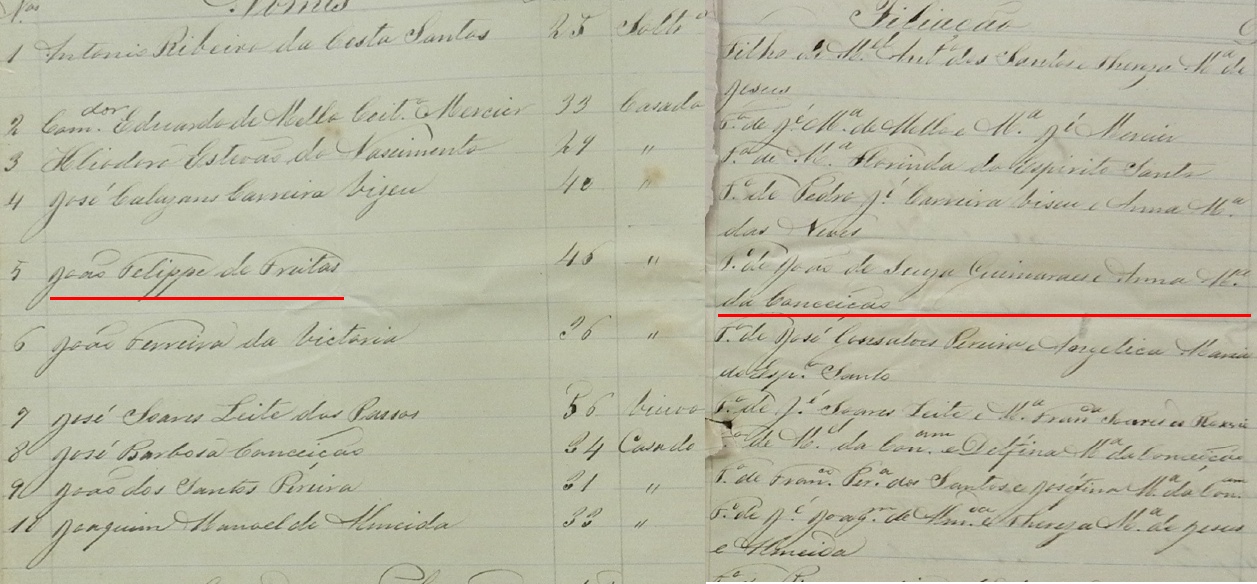 Nos Nomes Filiação
1 Antonio Ribeiro da Costa Santos 25 Soltro
Filho de Mel Anto dos Santos e Thereza Ma de
Jesus
2 Comdor Eduardo de Mello Coito Mercier 33 Casado
Fo de Jé Ma de Mello e Ma Jé Mercier
3 Heliodoro Estevão do Nascimento 29 "
Fo de Ma Florinda do Espirito Santo
4 José Calazans Carreira Vizeu 40 "
Fo de Pedro Jé Carreira Viseu e Anna Ma
das Neves
5 João Felippe de Freitas 46 "
Fo de João de Souza Guimaraes e Anna Ma
da Conceição
6 João Ferreira da Victoria 36 "
Fo de José Gonsalves Pereira e Angelica Maria
do Espo Santo
7 José Soares Leite dos Passos 56 Viuvo
Fo de Jé Soares Leite e Ma Franca Soares
8 José Barbosa Conceição 34 Casado
Fo de Mel da Con.am e Delfina Ma da Conceição
9 João dos Santos Pereira 31 "
Fo de Franco Pera dos Santos e Josefina Ma da Con.am
10 Joaquim Manoel de Almeida 33 "
Fo de Jé Joaqm de Alm.da e Thereza Ma de Jesus
e Almeida